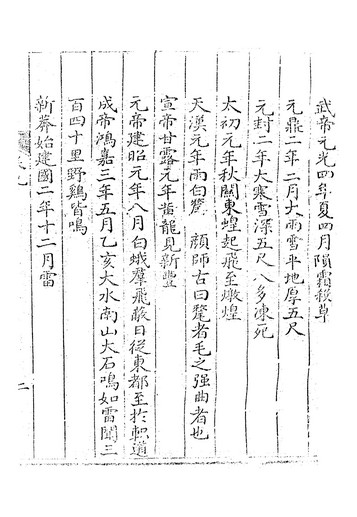 武帝元光四年夏四月隕霜殺草
元鼎二年三月大雨雪平地厚五尺
元封二年大寒雪深五尺人多凍死
太初元年秋關東蝗起飛至燉煌
天漢元年雨白氂 顔師古曰氂者毛之强曲者也
宣帝甘露元年黃龍見新豐
元帝建昭元年八月白蛾羣飛蔽日從東都至於軹道
成帝鴻嘉三年五月乙亥大水南山大石鳴如雷聞三
百四十里野鷄皆鳴
新莽始建國二年十二月雷
二